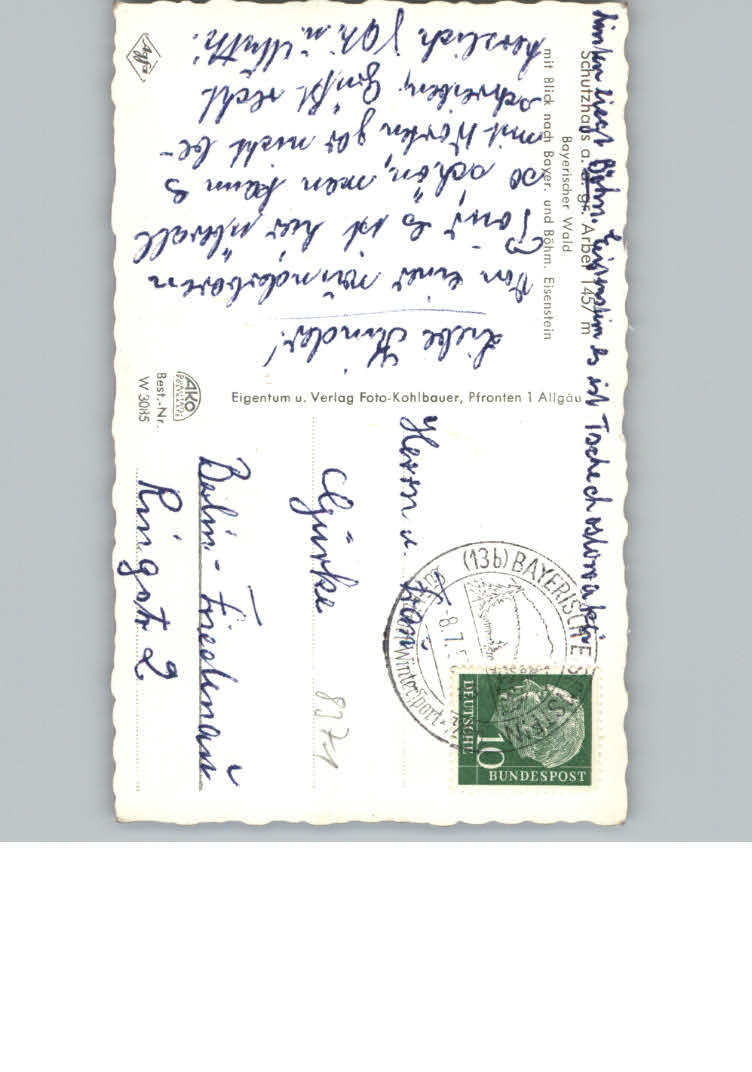 Schutzhaus a. d. gr. Arber 1457 m
Bayerischer Wald
mit Blick nach Bayer. und Böhm. Eisenstein
hinten liegt Böhm. Eisenstein es ist Tschechoslowakei
Liebe Kinder!
Von einer wunderbaren
Tour es ist hier überall
so schön, man kann es
mit Worten gar nicht be-
schreiben, Grüßt recht
herzlich
Agfa
Best.-Nr.
W 3085
AKO
Eigentum u. Verlag Foto-Kohlbauer, Pfronten 1 Allgäu
Herrn u. Frau
Gürke
Berlin-Friedenau
Ringstr 2
8371
(13b) BAYERISCH EISENSTEIN
-8.7.5
Wintersport
DEUTSCHE
BUNDESPOST
10